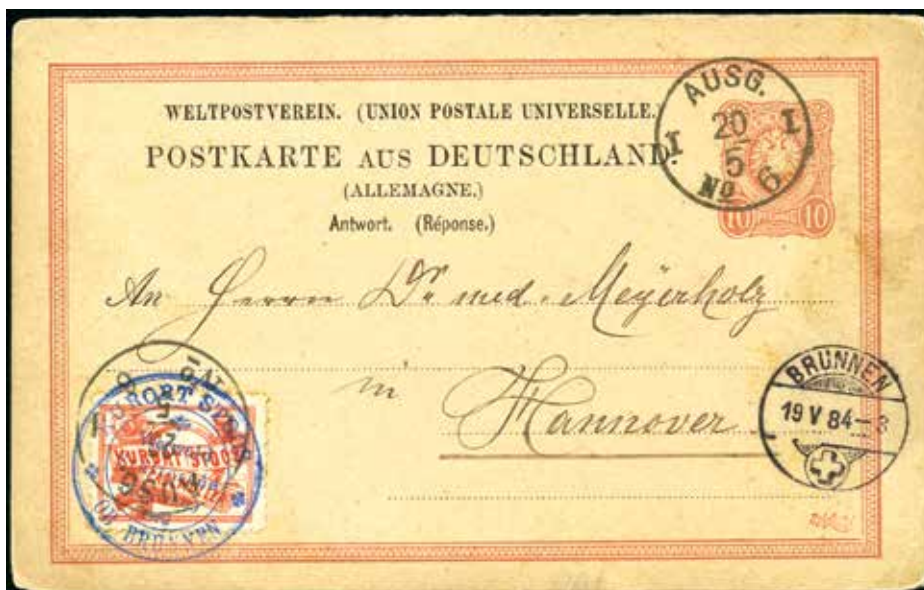 WELTPOSTVEREIN. (UNION POSTALE UNIVERSELLE.)
POSTKARTE AUS DEUTSCHLAND.
(ALLEMAGNE.)
Antwort. (Réponse.)
AUSG.
20
I 5 I
No 6
10 10
An Herrn Dr. med. Meyerholz
in
Hannover
BRUNNEN
19 V 84-
KURORT
KURORT STOOS
OB BRUNNEN